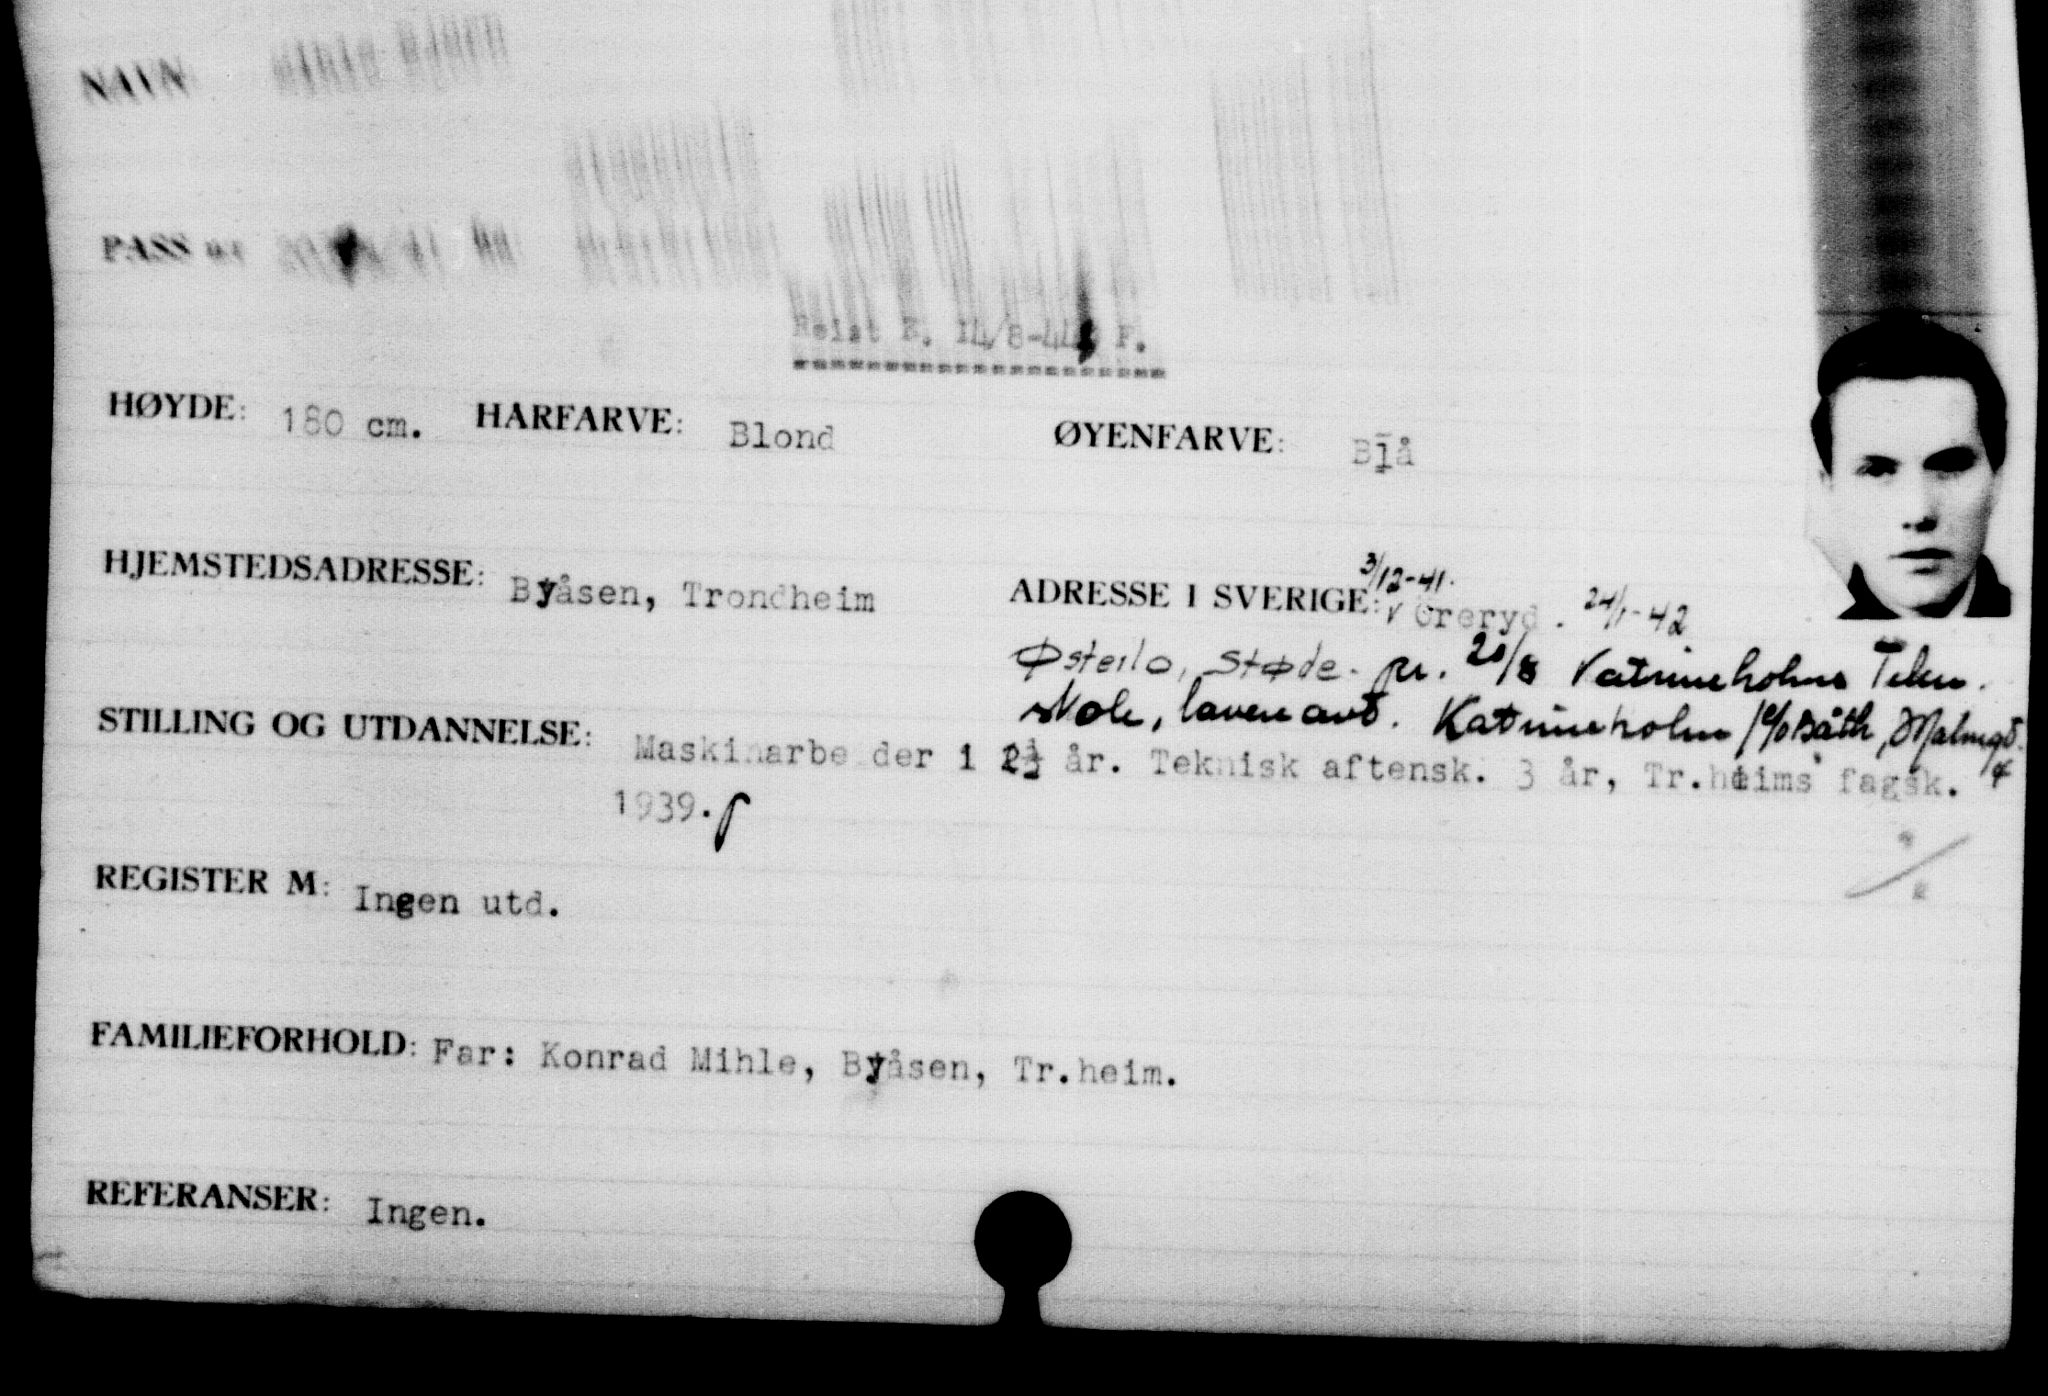 NAVN
PASS nr
Reist E. 14/8-44 F.
HØYDE: 180 cm. HÅRFARVE: Blond ØYENFARVE: Blå
3/12-41.
HJEMSTEDSADRESSE: Byåsen, Trondheim ADRESSE I SVERIGE: Öreryd. 24/1-42
Østerlo, Støde. pr. 20/8 Katrineholms Tekn.
STILLING OG UTDANNELSE: skole, lavere avd. Katrineholm c/o Bååth, Malmgt.
Maskinarbeider i 2½ år. Teknisk aftensk. 3 år, Tr.heims fagsk. 4
1939.
REGISTER M: Ingen utd.
FAMILIEFORHOLD: Far: Konrad Mihle, Byåsen, Tr.heim.
REFERANSER: Ingen.